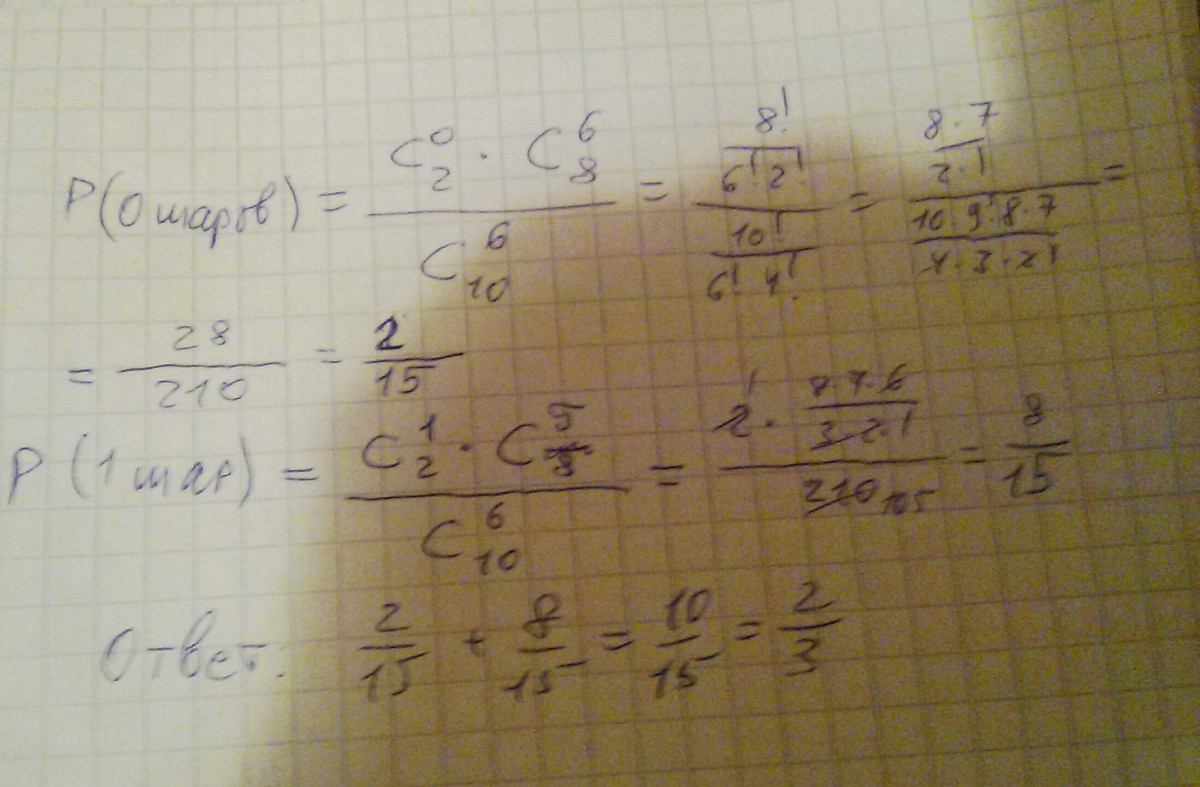 P(0 шаров) = (C₂⁰ · C₈⁶) / C₁₀⁶ = (8! / (6! 2!)) / (10! / (6! 4!)) = (8 · 7 / (2 · 1)) / (10 · 9 · 8 · 7 / (4 · 3 · 2 · 1)) =
= 28/210 = 2/15
P (1 шар) = (C₂¹ · C₈⁵) / C₁₀⁶ = (2 · (8 · 7 · 6 / (3 · 2 · 1))) / 210 105 = 8/15
Ответ: 2/15 + 8/15 = 10/15 = 2/3